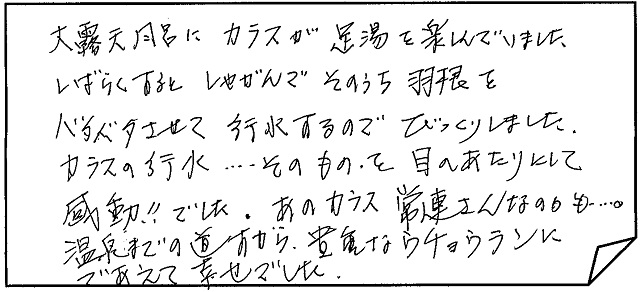 大露天風呂に カラスが 足湯を楽しんでいました。
しばらくすると しゃがんで そのうち 羽根を
バタバタさせて 行水するので びっくりしました。
カラスの行水 ‥‥そのもの、を 目のあたりにして
感動!! でした。あのカラス 常連さんなのかも‥‥。
温泉までの道すがら、貴重なウチョウランに
であえて 幸せでした。